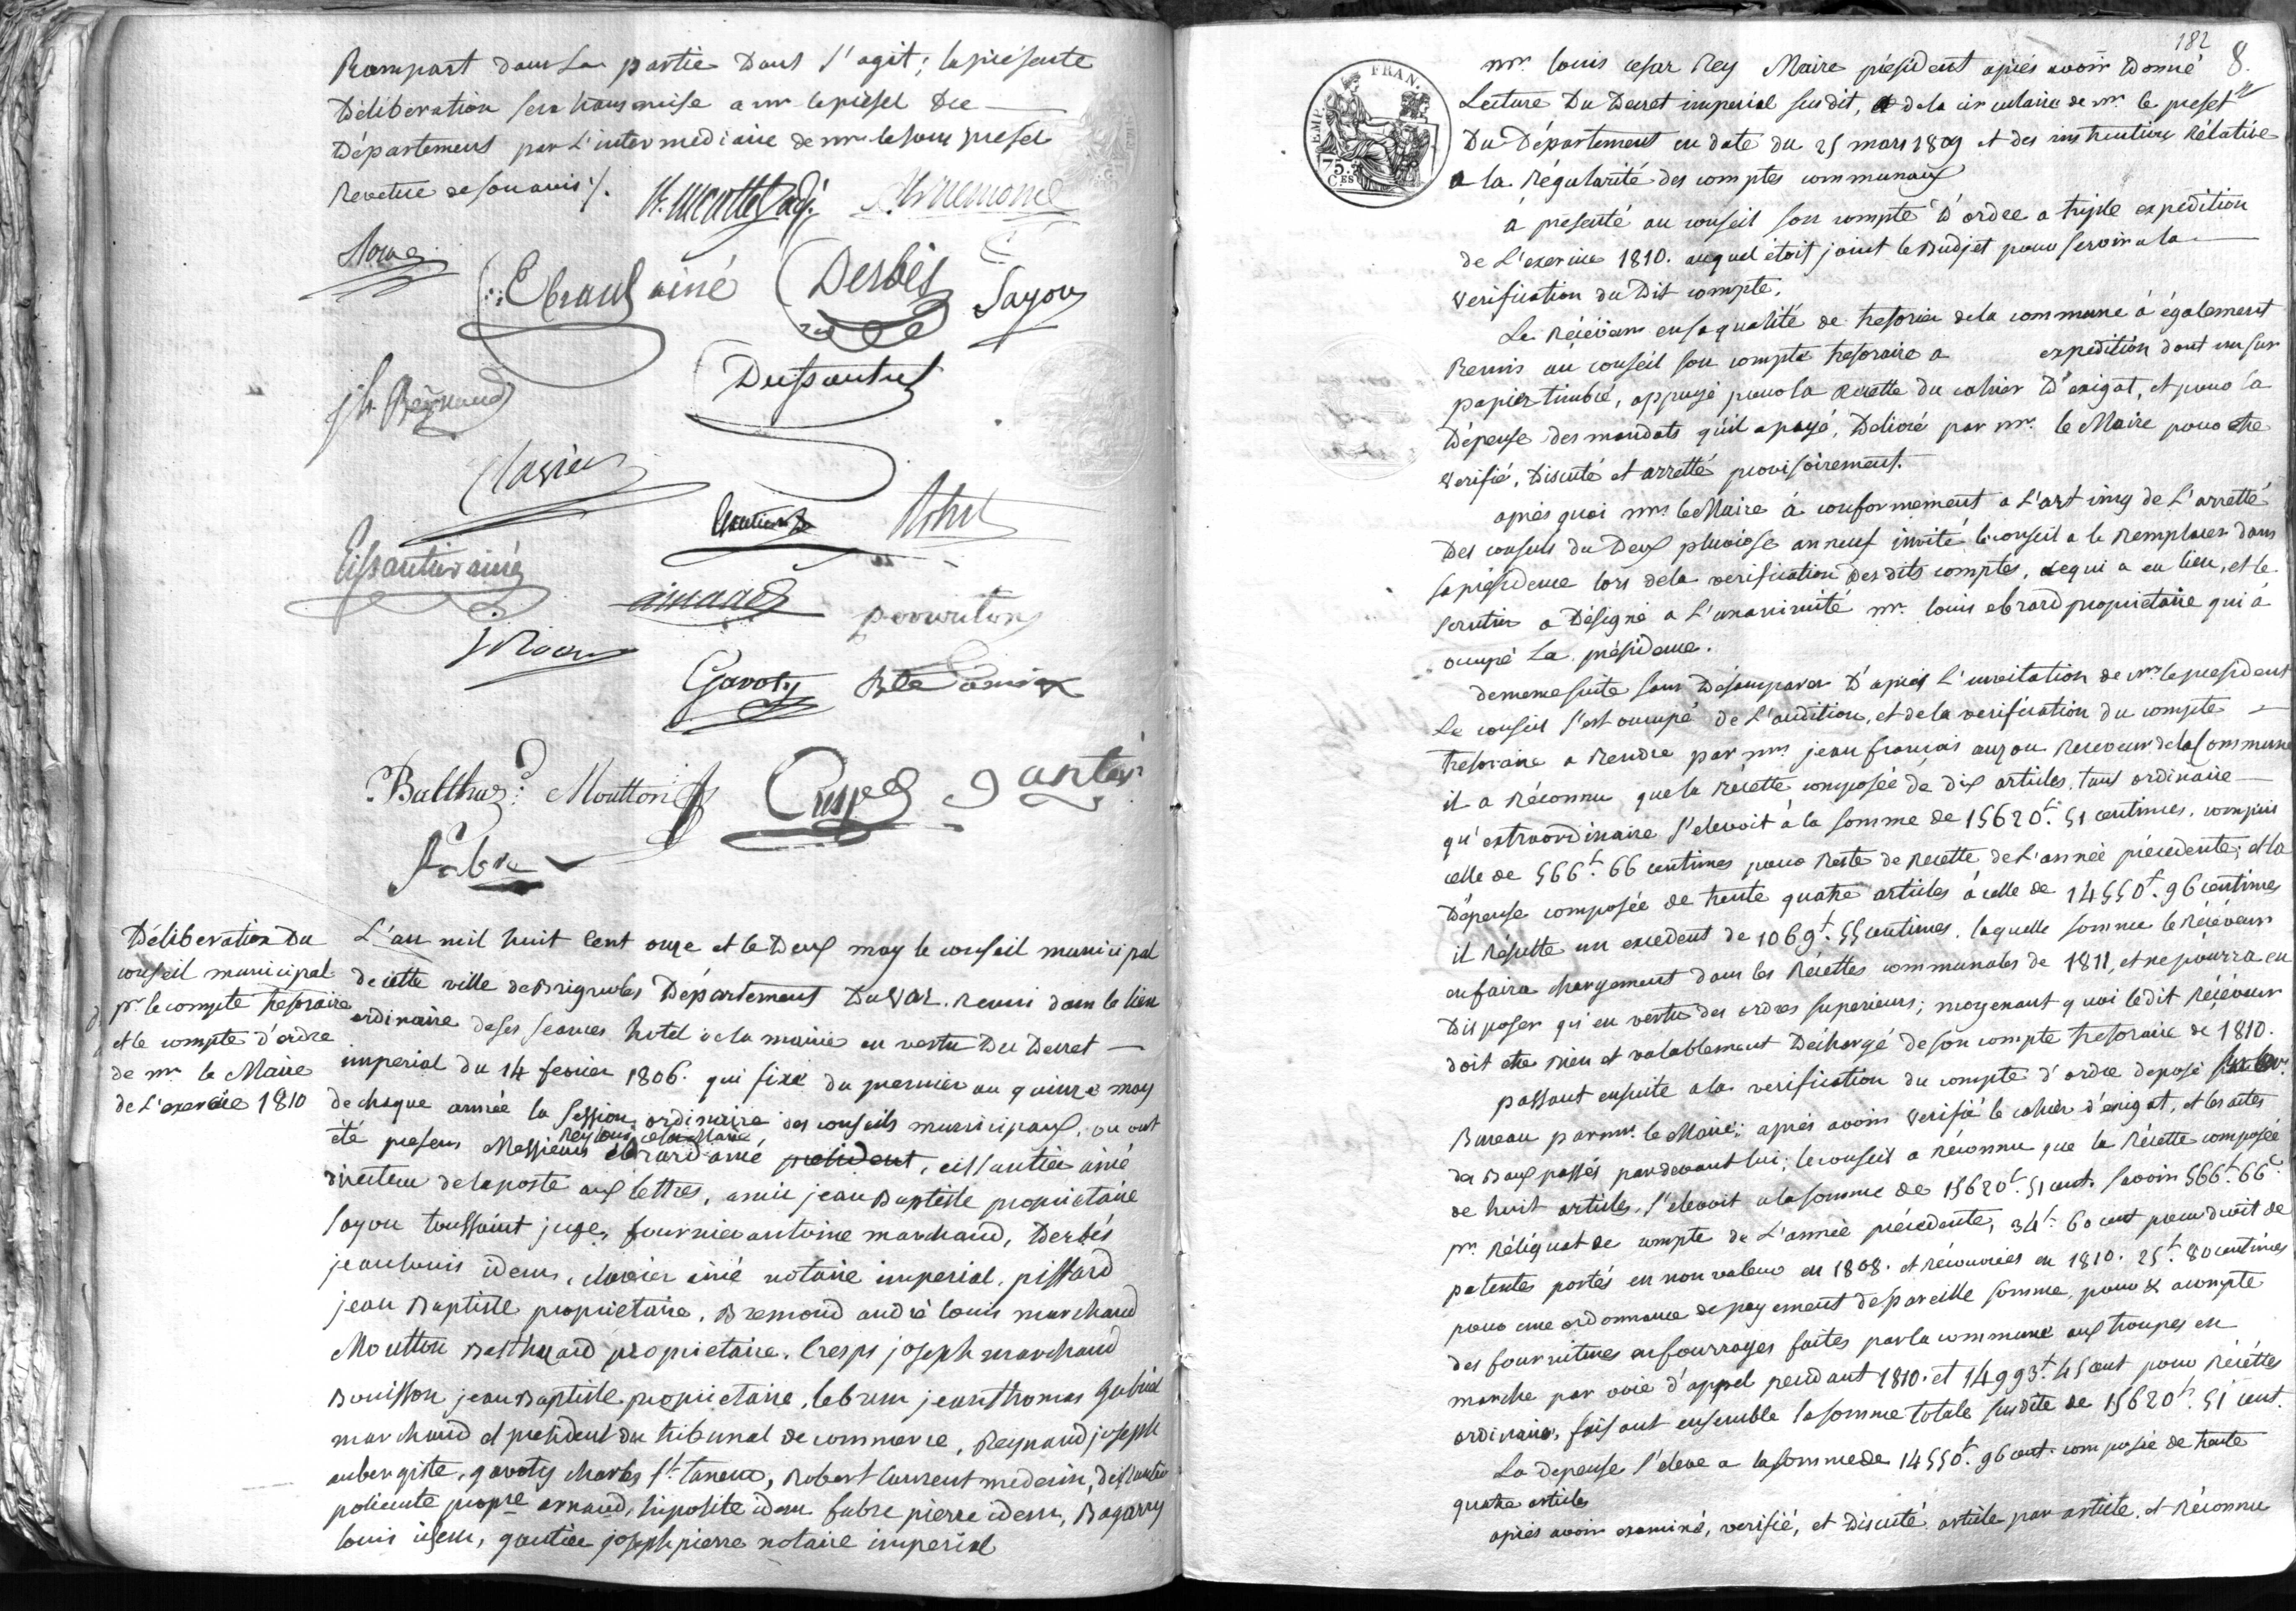 Rampart dans La partie Dont s'agit; la présente
Déliberation sera transmise a mr le préfet Du
Département par L'intermédiaire de mr le sous préfet
Revetue de son avis ./.
Ebrard ainé
Derbès
Sayou
jh Reynaud
Dessautier
Clavier
Gautier
Robert
Eissautier ainé
Gavoty
Balthard Moutton
Crespe
Fabre
Déliberation Du
conseil municipal
pr. le compte tresoraire
et le compte d'ordre
de mr le Maire
de L'exercice 1810
L'an mil huit cent onze et le Deux may le conseil municipal
de cette ville de Brignoles Département Du Var. reuni dans le lieu
ordinaire de ses seances hotel de la mairie en vertu Du Decret
imperial du 14 fevrier 1806. qui fixe du premier au quinze may
de chaque année la session ordinaire des conseils municipaux, ou ont
Rey louis cesar Maire
été presens Messieurs ébrard ainé president, eissautier ainé
directeur de la poste aux lettres, amic jean Baptiste propriétaire
sayou toussaint juge, fournier antoine marchand, Derbés
jean louis idem, clavier ainé notaire imperial, pissard
jean Baptiste propriétaire, Bremond andré louis marchand
Moutton Balthazard propriétaire, Crespe joseph marchand
Bouisson jean Baptiste propriétaire, lebrun jean thomas Gabriel
marchand et president du tribunal de commerce, Reynaud joseph
aubergiste, gavoty charles ft. taneur, Robert laurent medecin, dessautier
policarte propre arnaud, hiposite idem fabre pierre idem, Bagarry
louis idem, gautier joseph pierre notaire imperial
182
8.
EMP. FRAN.
75.
C.ES
mr. louis cesar Rey Maire président après avoir Donné
Lecture Du Decret imperial susdit, et de la circulaire de mr. le prefet
Du Département en date du 25 mars 1809 et des instructions Rélative
a la Régularité des comptes communaux
à presenté au conseil son compte D'ordre a triple expedition
de L'exercice 1810. auquel étoit joint le Budjet pour servir a la
verification du Dit compte,
Le Réceveur en sa qualité de tresorier de la commune à également
Remis au conseil son compte tresoraire a expedition dont un sur
papier timbré, appuyé pour la Recette du cahier D'exigat, et pour la
Dépense des mandats qu'il a payé, Delivré par mr. le Maire pour etre
verifié, Discuté et arretté provisoirement.
après quoi mr. le Maire à conformement a L'art cinq de L'arretté
Des consuls du Deux pluviose an neuf invité le conseil a le Remplacer dans
sa présidence lors de la verification des dits comptes, ce qui a eu lieu, et le
scrutin a Désigné a L'unanimité mr. louis ebrard propriétaire qui à
occupé La présidence.
de meme suite sans Désamparer D'après L'invitation de mr. le president
Le conseil s'est occupé de L'audition, et de la verification du compte
tresoraire a Rendre par mr. jean françois auzou Receveur de la Commune
il a Réconnu que la Récette composée de Dix articles tant ordinaire
qu'extraordinaire s'elevoit à la somme de 15620f. 51 centimes. compris
celle de 566f. 66 centimes pour Reste de Recette de L'année précédente, et la
Dépense composée de trente quatre articles à celle de 14550f. 96 centimes
il Résulte un excedent de 1069f. 55 centimes. laquelle somme le Réceveur
en faira chargement dans les Récettes communales de 1811, et ne pourra en
Disposer qu'en vertu des ordres superieurs; moyenant quoi ledit Réceveur
doit etre Bien et valablement Déchargé de son compte tresoraire de 1810.
passant ensuite a la verification du compte d'ordre deposé sur le
Bureau par mr. le Maire; après avoir verifié le cahier d'exigat, et les actes
des Baux passés pardevant lui; le conseil a réconnu que la Récette composée
de huit articles, s'elevoit a la somme de 15620f. 51 cent. savoir 566f. 66c.
pr. Réliquat de compte de L'année précédente, 34f. 60 cent pour droit de
patentes portés en non valeur en 1808. et récouvrées en 1810. 25f. 80 centimes
pour une ordonnance de payement de pareille somme, pour & acompte
des fournitures en fourrages faites par la commune aux troupes en
marche par voie d'appel pendant 1810. et 14993f. 45 cent pour Récettes
ordinaires, faisant ensemble la somme totale susdite de 15620f. 51 cent.
La depense s'eleve a la somme de 14550f. 96 cent. composée de trente
quatre articles
après avoir examiné, verifié, et Discuté article par article, et Réconnu